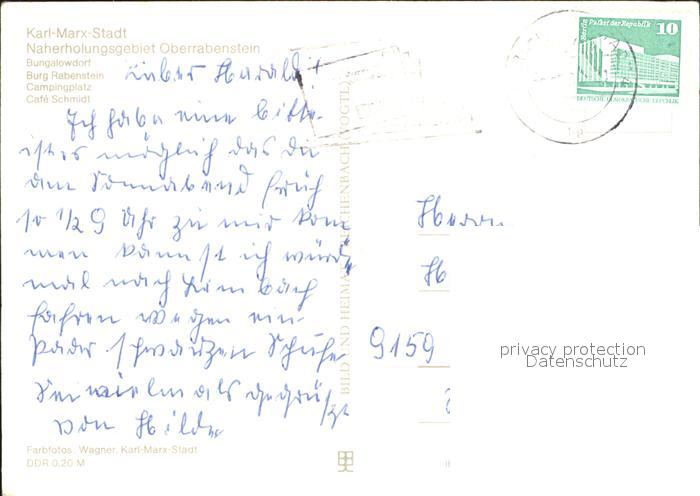 Karl-Marx-Stadt
Naherholungsgebiet Oberrabenstein
Bungalowdorf
Burg Rabenstein
Campingplatz
Café Schmidt
Lieber Harald!
Ich habe eine bitte.
ist es möglich das du
am Sonnabend früh
so 1/2 9 Uhr zu mir kom
men kannst ich würde
mal nach Limbach
fahren wegen ein
Paar schwarzen Schuhe
Sei vielmals gegrüßt
von Hilde
Farbfotos: Wagner, Karl-Marx-Stadt
DDR 0,20 M
BILD UND HEIMAT REICHENBACH (VOGTL
Berlin Palast der Republik
10
DEUTSCHE DEMOKRATISCHE REPUBLIK
Herrn
H
9159
privacy protection
Datenschutz